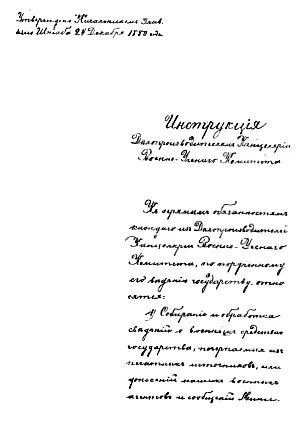 Утверждено Начальникомъ Глав.
наго Штаба 24 Декабря 1880 года
Инструкція
Делопроизводителямъ Канцеляріи
Военно-Ученаго Комитета
Къ прямымъ обязанностямъ
каждаго изъ Делопроизводителей
Канцеляріи Военно-Ученаго
Комитета, по порученному
его веденію государству, отно
сятся:
1) Собираніе и обработка
сведеній о военныхъ средствахъ
государства, почерпаемыхъ изъ
печатныхъ источниковъ, или
донесеній нашихъ военныхъ
агентовъ и сообщеній